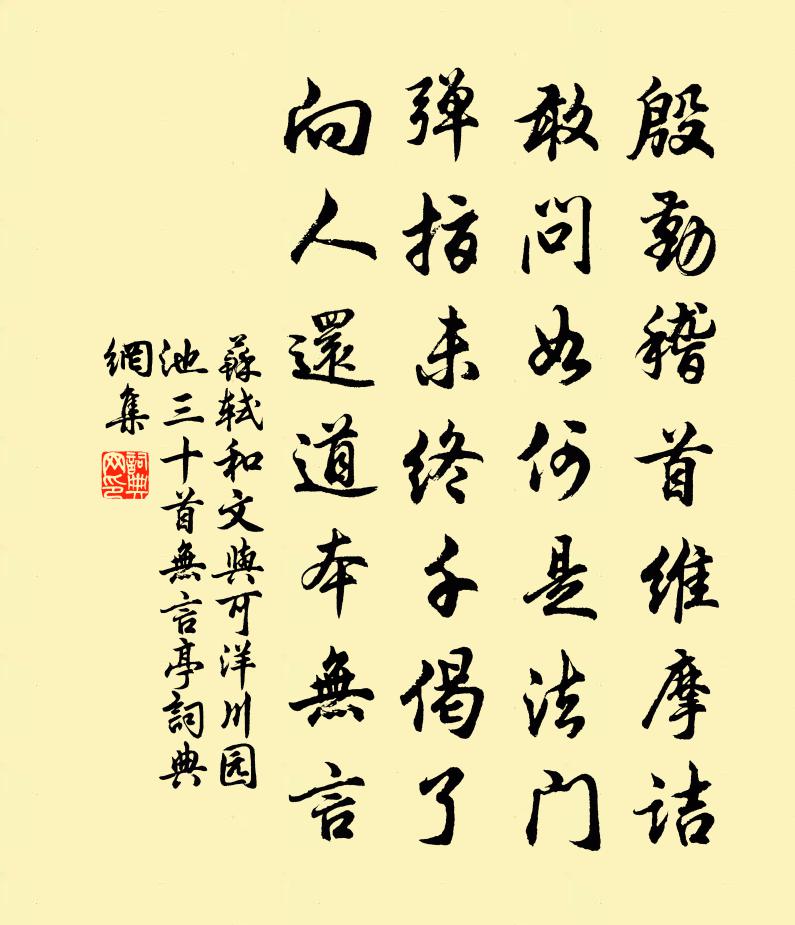 殷勤稽首維摩詰
敢問如何是法門
弹指未終千偈了
向人還道本無言
蘇軾和文與可洋川园
池三十首無言亭詞典
網集
詞典网印